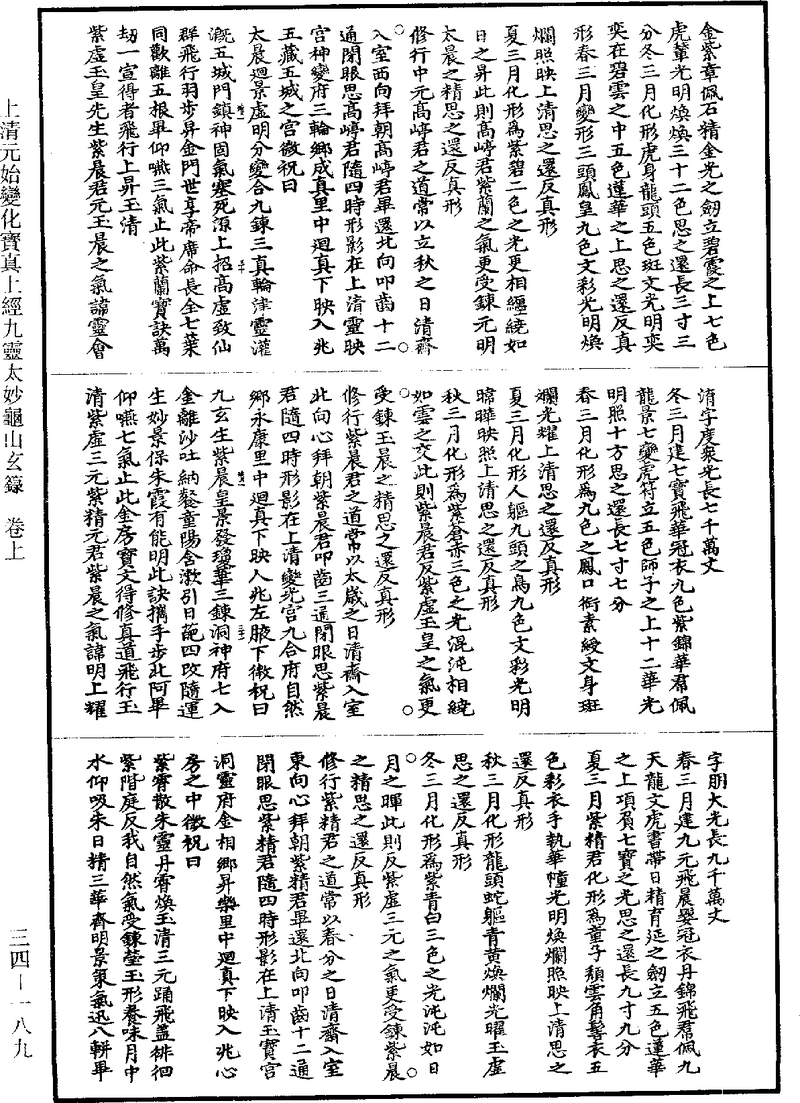 金紫章佩石精金光之劒立碧霞之上七色
虎輦光明煥煥三十二色思之還長三寸三
分冬三月化形虎身龍頭五色斑文光明奕
奕在碧雲之中五色蓮華之上思之還反真
形春三月變形三頭鳳皇九色文彩光明煥
爛照映上清思之還反真形
夏三月化形為紫碧二色之光更相纏繞如
日之昇此則髙崝君紫蘭之氣更受鍊元明
太晨之精思之還反真形
修行中元髙崝君之道常以立秋之日清齋
入室西向拜朝髙崝君畢還北向叩齒十二
通閉眼思髙崝君隨四時形影在上清靈映
宮神變府三輪鄉成真里中迴真下映入兆
五藏五城之宮微祝曰
太晨迴景虛明分變合九鍊三真輪津靈灌
溉五城門鎮神固氣塞死源上招髙虛致仙
群飛行羽步昇金門世享帝席命長全七葉
同歡離五根畢仰嚥三氣止此紫蘭寶訣萬
劫一宣得者飛行上昇玉清
紫虛玉皇先生紫晨君元玉晨之氣諱靈會
清字度衆光長七千萬丈
冬三月建七寶飛華冠衣九色紫錦華帬佩
龍景七變虎符立五色師子之上十二華光
明照十方思之還長七寸七分
春三月化形為九色之鳳口銜素綬文身斑
斕光耀上清思之還反真形
夏三月化形人軀九頭之鳥九色文彩光明
暐曄映照上清思之還反真形
秋三月化形為紫蒼赤三色之光混沌相繞
如雲之交此則紫晨君反紫虛玉皇之氣更
受鍊玉晨之精思之還反真形
修行紫晨君之道常以太歲之日清齋入室
北向心拜朝紫晨君叩齒三通閉眼思紫晨
君隨四時形影在上清變光宮九合府自然
鄉永康里中迴真下映入兆左腋下微祝曰
九玄生紫晨皇景發瓊華三鍊洞神府七入
金離沙吐納餐童陽含漱引日葩四攺隨運
生妙景保朱霞有能明此訣攜手步此阿畢
仰嚥七氣止此金房寶文得修真道飛行玉
清紫虛三元紫精元君紫晨之氣諱明上耀
字朗大光長九千萬丈
春三月建九元飛晨嬰冠衣丹錦飛帬佩九
天龍文虎書帶日精育延之劒立五色蓮華
之上項負七寶之光思之還長九寸九分
夏三月紫精君化形為童子頮雲角髻衣五
色彩衣手執華幢光明煥爛照映上清思之
還反真形
秋三月化形龍頭蛇軀青黄煥爛光曜玉虛
思之還反真形
冬三月化形為紫青白三色之光沌沌如日
月之暉此則反紫虛三元之氣更受鍊紫晨
之精思之還反真形
修行紫精君之道常以春分之日清齋入室
東向心拜朝紫精君畢還北向叩齒十二通
閉眼思紫精君隨四時形影在上清玉寶宮
洞靈府金相鄉昇樂里中迴真下映入兆心
房之中微祝曰
紫霄散朱靈丹霄煥玉清三元踊飛蓋徘徊
紫階庭反我自然氣受鍊瑩玉形養味月中
水仰吸朱日精三華齊明景策氣迅八軿畢
上清元始變化寶真上經九靈太妙龜山玄籙　卷上
三四—一八九